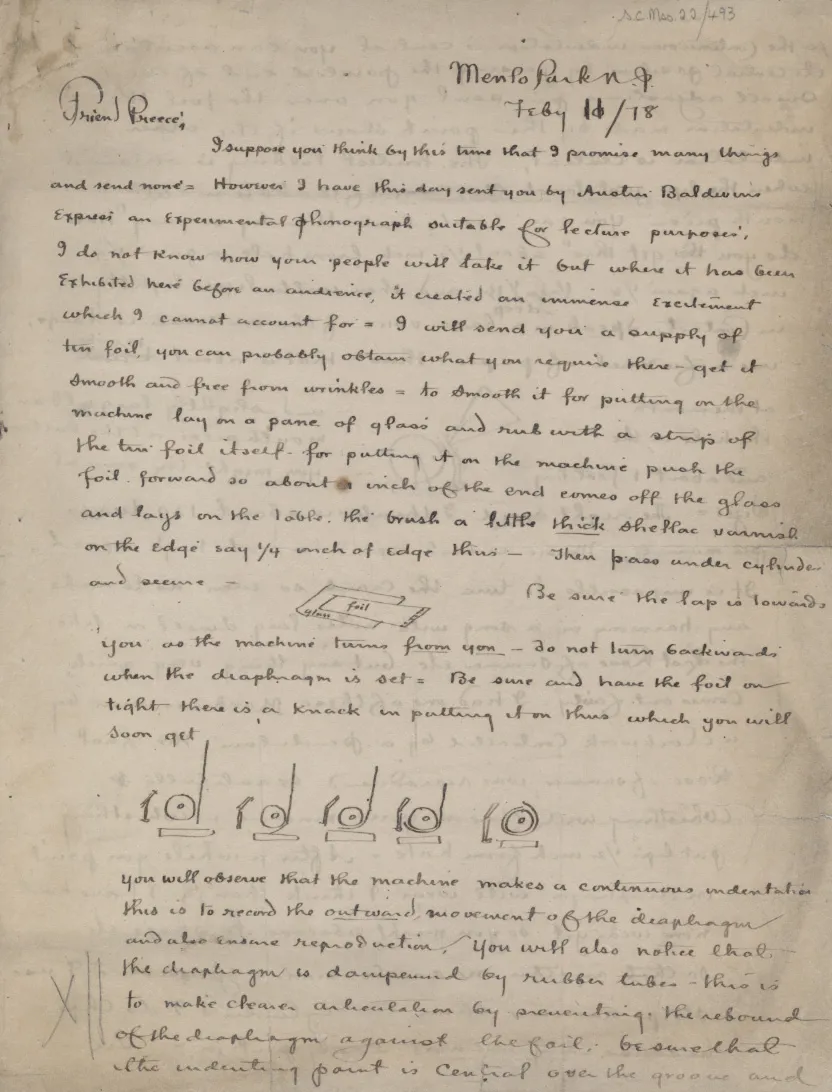 S.C. Mss. 22/493
Menlo Park N.J.
Feby 11/78
Friend Preece,
I suppose you think by this time that I promise many things
and send none = However I have this day sent you by Austin Baldwins
Express an Experimental phonograph suitable for lecture purposes,
I do not know how your people will take it but where it has been
Exhibited here before an audience, it created an immense Excitement
which I cannot account for = I will send you a supply of
tin foil, you can probably obtain what you require there – get it
smooth and free from wrinkles = to smooth it for putting on the
machine lay on a pane of glass and rub with a strip of
the tin foil itself. for putting it on the machine push the
foil forward so about 1 inch of the end comes off the glass
and lays on the table. the brush a little thick shellac varnish
on the edge say 1/4 inch of edge thus – Then pass under cylinder
and secure –
foil
glass
Be sure the lap is towards
you as the machine turns from you – do not turn backwards
when the diaphragm is set = Be sure and have the foil on
tight there is a knack in putting it on thus which you will
soon get
you will observe that the machine makes a continuous indentation
this is to record the outward movement of the diaphragm
and also ensure reproduction, You will also notice that
the diaphragm is dampened by rubber tubes – this is
to make clearer articulation by preventing the rebound
of the diaphragm against the foil, be sure that
the indenting point is Central over the groove and